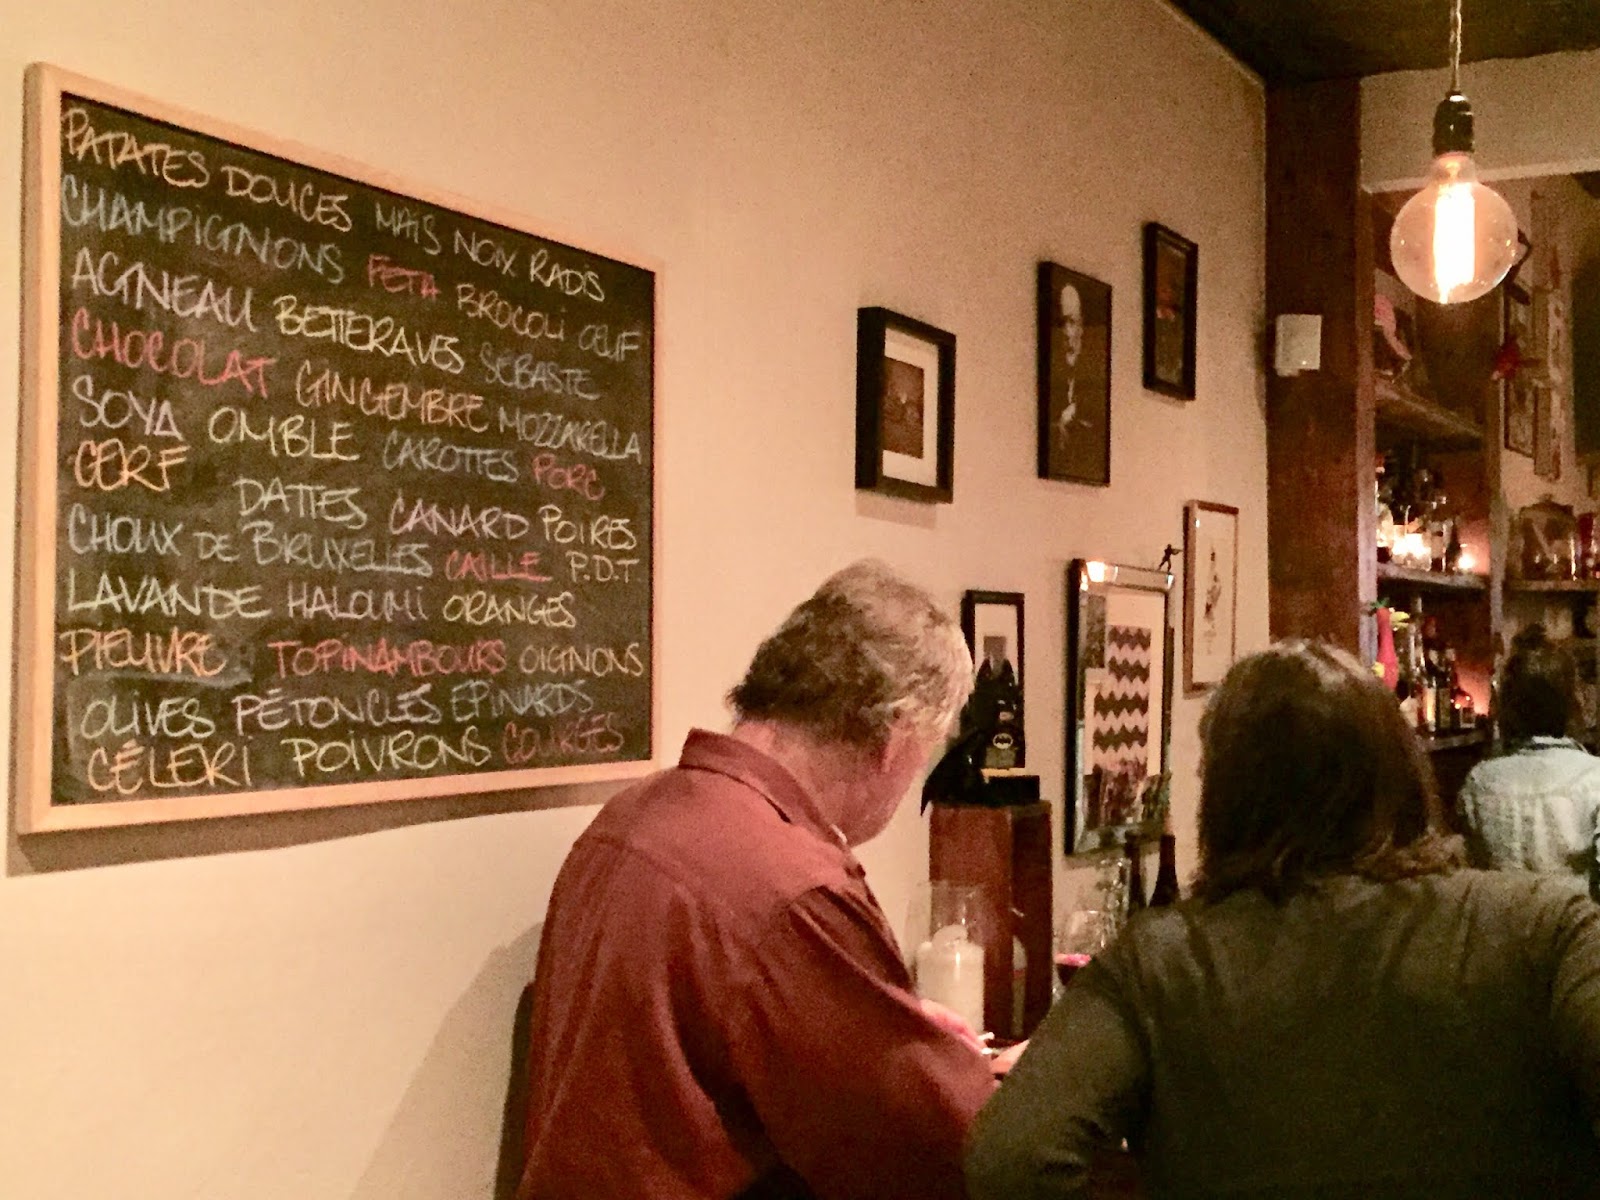 PATATES DOUCES MAÏS NOIX RADIS
CHAMPIGNONS FETA BROCOLI OEUF
AGNEAU BETTERAVES SEBASTE
CHOCOLAT GINGEMBRE MOZZARELLA
SOYA OMBLE CAROTTES PORC
CERF DATTES CANARD POIRES
CHOUX DE BRUXELLES CAILLE P.D.T.
LAVANDE HALOUMI ORANGES
PIEUVRE TOPINAMBOURS OIGNONS
OLIVES PÉTONCLES EPINARDS
CÉLERI POIVRONS COURGES